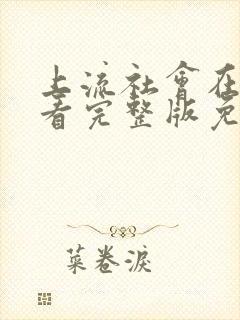 上流社會在
看完整版免
菜卷淚